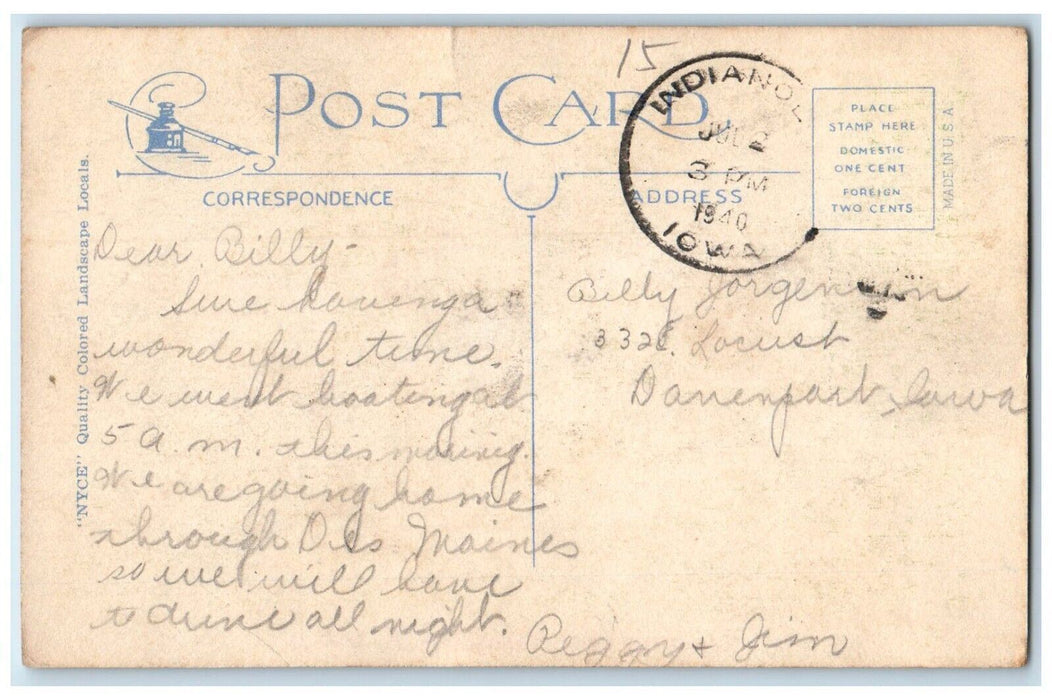 15
POST CARD
INDIANOL
JUL 2
3 PM
1940
IOWA
PLACE
STAMP HERE
DOMESTIC
ONE CENT
FOREIGN
TWO CENTS
MADE IN U.S.A.
CORRESPONDENCE
ADDRESS
"NYCE" Quality Colored Landscape Locals.
Dear Billy-
Sure having a
wonderful time.
We went boating at
5 a.m. this morinig.
We are going home
through Des Moines
so we will have
to drive all night.
Peggy + Jim
Billy Jorgensen
332 Locust
Davenport, Iowa